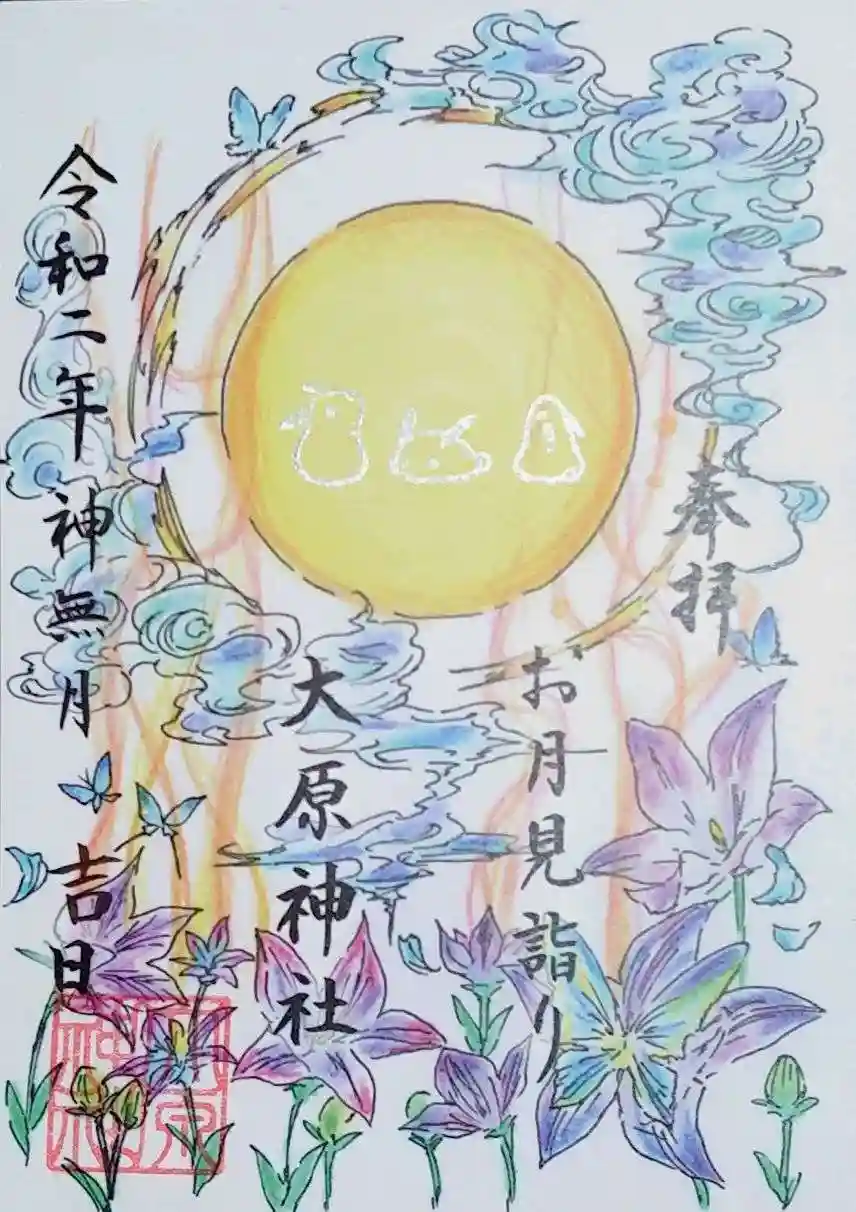 奉拝
お月見詣り
大原神社
令和二年神無月吉日